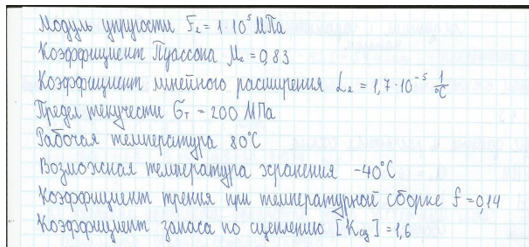 Модуль упругости E₂ = 1·10⁵ МПа
Коэффициент Пуассона М₂ = 0,83
Коэффициент линейного расширения L₂ = 1,7·10⁻⁵ 1/°С
Предел текучести Gт = 200 МПа
Рабочая температура 80°С
Возможная температура хранения -40°С
Коэффициент трения при температурной сборке f = 0,14
Коэффициент запаса по сцеплению [Kсц] = 1,6